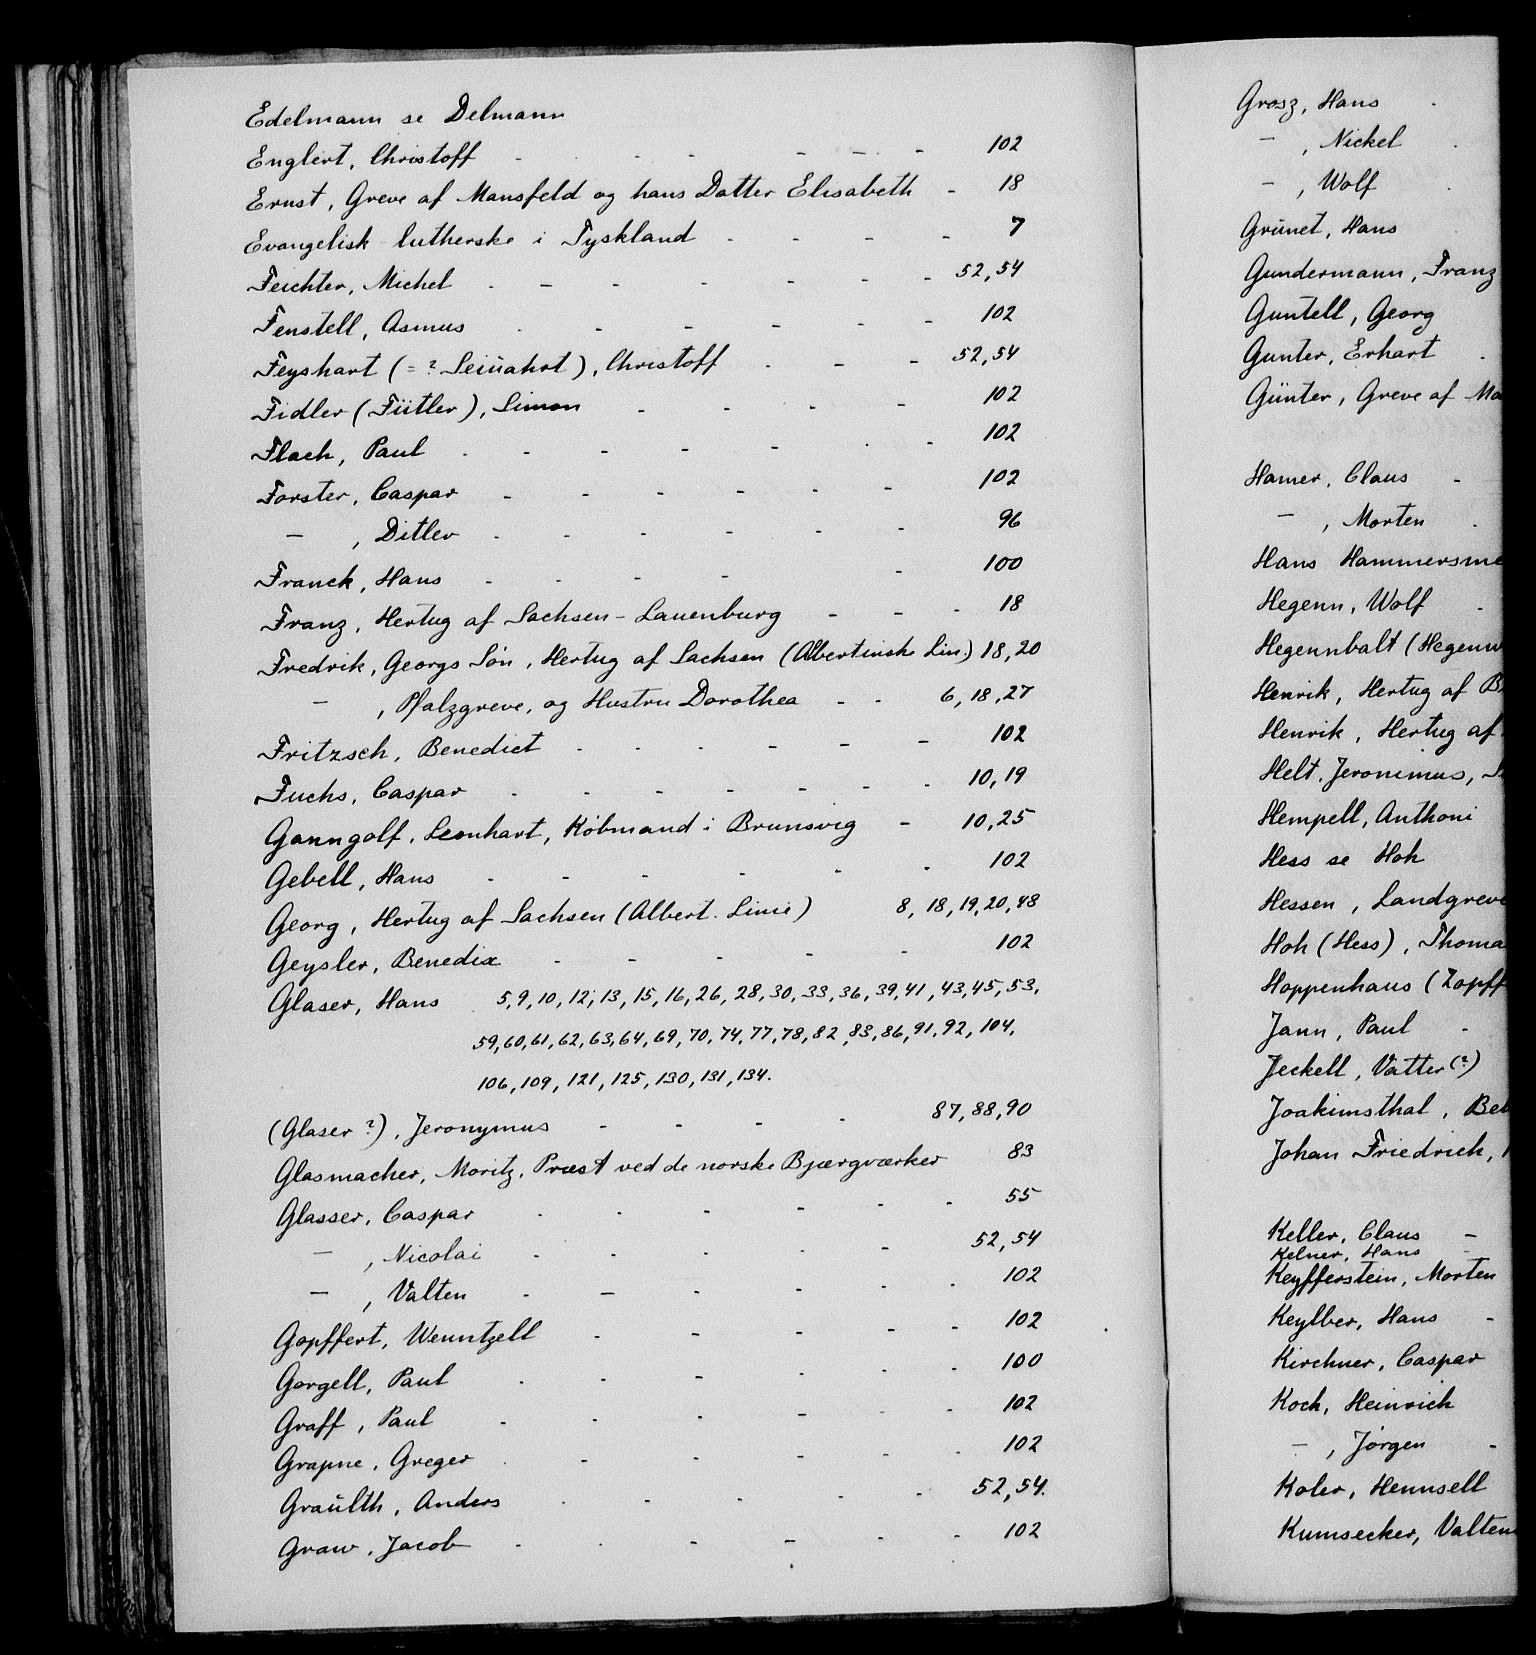 Edelmann se Delmann
Englert, Christoff - - - - - - 102
Ernst, Greve af Mansfeld og hans Datter Elisabeth - 18
Evangelisk lutherske i Tyskland - - - - 7
Feichter, Michel - - - - - - - 52,54
Fenstell, Asmus - - - - - - 102
Feyshart (= ? Seiüahrt), Christoff - - - 52,54
Fidler (Fütler), Simon - - - - 102
Flach, Paul - - - - - - - 102
Forster, Caspar - - - - - - 102
- , Ditlev - - - - - - 96
Franck, Hans - - - - - 100
Franz, Hertug af Sachsen-Lauenburg - - - 18
Fredrik, Georgs Søn, Hertug af Sachsen (Albertinske Lin.) 18,20
- , Pfalzgreve, og Hustru Dorothea - - 6,18,27
Fritzsch, Benedict - - - - - - 102
Fuchs, Caspar - - - - - - - 10,19
Ganngolf, Leonhart, Købmand i Brunsvig - 10,25
Gebell, Hans - - - - - - 102
Georg, Hertug af Sachsen (Albert. Linie) 8, 18, 19, 20, 48
Geysler, Benedix - - - - - 102
Glaser, Hans 5,9,10,12,13,15,16,26,28,30,33,36,39,41,43,45,53,
59,60,61,62,63,64,69,70,74,77,78,82,83,86,91,92,104,
106,109,121,125,130,131,134.
(Glaser ?), Jeronymus - - - - 87,88,90
Glasmacher, Moritz, Præst ved de norske Bjærgværker 83
Glasser, Caspar - - - - - - 55
- , Nicolai - - - - - 52,54
- , Valten - - - - - - 102
Gopffert, Wenntzell - - - - - 102
Gorgell, Paul - - - - - 100
Graff, Paul - - - - - - 102
Grapne, Greger - - - - - - 102
Graülth, Anders - - - - - 52,54.
Graw, Jacob - - - - - - 102
Grosz, Hans -
- , Nickel -
- , Wolf -
Grünet, Hans
Gundermann, Franz
Guntell, Georg
Gunter, Erhart -
Günter, Greve af Ma
Hamer, Claus -
- , Morten -
Hans Hammersme
Hegenn, Wolf -
Hegennbalt (Hegenw
Henrik, Hertug af B
Henrik, Hertug af
Helt, Jeronimus,
Hempell, Anthoni
Hess se Hoh
Hessen, Landgreve
Hoh (Hess), Thoma
Hoppenhaus (Zopff
Jann, Paul -
Jeckell, Vatter (?)
Joakimsthal, Be
Johan Friedrich,
Keller, Claus -
Kelner, Hans -
Keyfferstein, Morten
Keylber, Hans -
Kirchner, Caspar
Koch, Heinrich
- , Jørgen -
Koler, Hennsell
Kumsecker, Valten